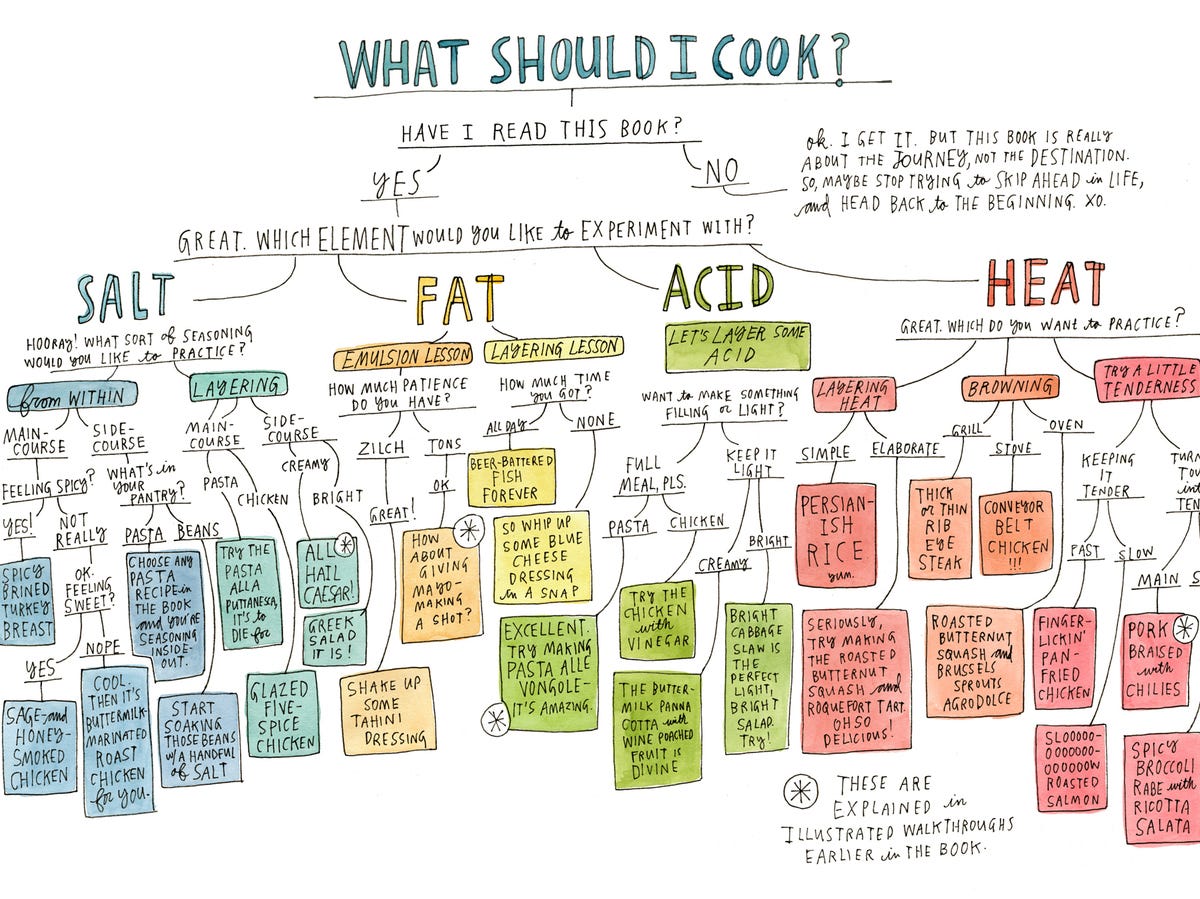 WHAT SHOULD I COOK?
HAVE I READ THIS BOOK?
YES
NO
ok. I GET IT. BUT THIS BOOK IS REALLY
ABOUT THE JOURNEY, NOT THE DESTINATION.
SO, MAYBE STOP TRYING to SKIP AHEAD in LIFE,
and HEAD BACK to THE BEGINNING. XO.
GREAT. WHICH ELEMENT WOULD YOU LIKE to EXPERIMENT WITH?
SALT
HOORAY! WHAT SORT of SEASONING
WOULD YOU LIKE to PRACTICE?
from WITHIN
MAIN-
COURSE
FEELING SPICY?
YES!
SPICY
BRINED
TURKEY
BREAST
NOT
REALLY
OK.
FEELING
SWEET?
YES
SAGE-and
HONEY-
SMOKED
CHICKEN
NOPE
COOL,
THEN IT'S
BUTTERMILK-
MARINATED
ROAST
CHICKEN
for YOU.
SIDE-
COURSE
WHAT'S in
YOUR
PANTRY?
PASTA
CHOOSE ANY
PASTA
RECIPE in
THE BOOK
and YOU'RE
SEASONING
INSIDE-
OUT.
BEANS
START
SOAKING
THOSE BEANS
w/A HANDFUL
of SALT
LAYERING
MAIN-
COURSE
PASTA
TRY THE
PASTA
ALLA
PUTTANESCA,
it's to
DIE for
CHICKEN
GLAZED
FIVE-
SPICE
CHICKEN
SIDE-
COURSE
CREAMY
ALL
HAIL
CAESAR!
BRIGHT
GREEK
SALAD
IT IS!
FAT
EMULSION LESSON
HOW MUCH PATIENCE
DO YOU HAVE?
ZILCH
GREAT!
SHAKE UP
SOME
TAHINI
DRESSING
TONS
OK
HOW
ABOUT
GIVING
MAYO-
MAKING
A SHOT?
LAYERING LESSON
HOW MUCH TIME
YOU GOT?
ALL DAY
BEER-BATTERED
FISH
FOREVER
NONE
SO WHIP UP
SOME BLUE
CHEESE
DRESSING
in A SNAP
ACID
LET'S LAYER SOME
ACID
WANT to MAKE SOMETHING
FILLING or LIGHT?
FULL
MEAL, PLS.
PASTA
EXCELLENT.
TRY MAKING
PASTA ALLE
VONGOLE-
IT'S AMAZING.
CHICKEN
TRY THE
CHICKEN
with
VINEGAR
KEEP IT
LIGHT
CREAMY
THE BUTTER-
MILK PANNA
COTTA with
WINE POACHED
FRUIT is
DIVINE
BRIGHT
BRIGHT
CABBAGE
SLAW IS
THE
PERFECT
LIGHT,
BRIGHT
SALAD.
TRY!
HEAT
GREAT. WHICH DO YOU WANT to PRACTICE?
LAYERING
HEAT
SIMPLE
PERSIAN-
ISH
RICE
yum.
ELABORATE
SERIOUSLY,
TRY MAKING
THE ROASTED
BUTTERNUT
SQUASH and
ROQUEFORT TART.
OH SO
DELICIOUS!
BROWNING
GRILL
THICK
or THIN
RIB
EYE
STEAK
STOVE
CONVEYOR
BELT
CHICKEN
!!!
OVEN
ROASTED
BUTTERNUT
SQUASH and
BRUSSELS
SPROUTS
AGRODOLCE
TRY A LITTLE
TENDERNESS
KEEPING
IT
TENDER
FAST
FINGER-
LICKIN'
PAN-
FRIED
CHICKEN
SLOW
SLOOOOO-
OOOOOOO-
OOOOOOW
ROASTED
SALMON
TURN
TO
int
TEN
MAIN
S
PORK
BRAISED
with
CHILIES
SPICY
BROCCOLI
RABE with
RICOTTA
SALATA
THESE ARE
EXPLAINED in
ILLUSTRATED WALKTHROUGHS
EARLIER in THE BOOK.